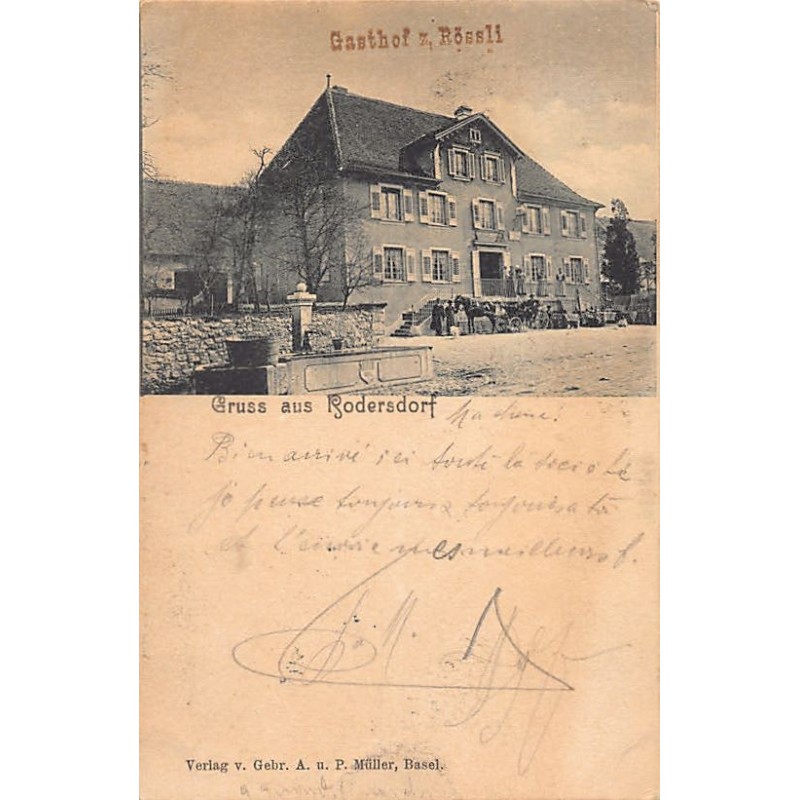 Gasthof z. Rössli
Gruss aus Rodersdorf
Ma chere!
Bien arrivé ici toute la societé
je pense toujours toujours a toi
et t'envoie mes meilleurs
Verlag v. Gebr. A. u. P. Müller, Basel.